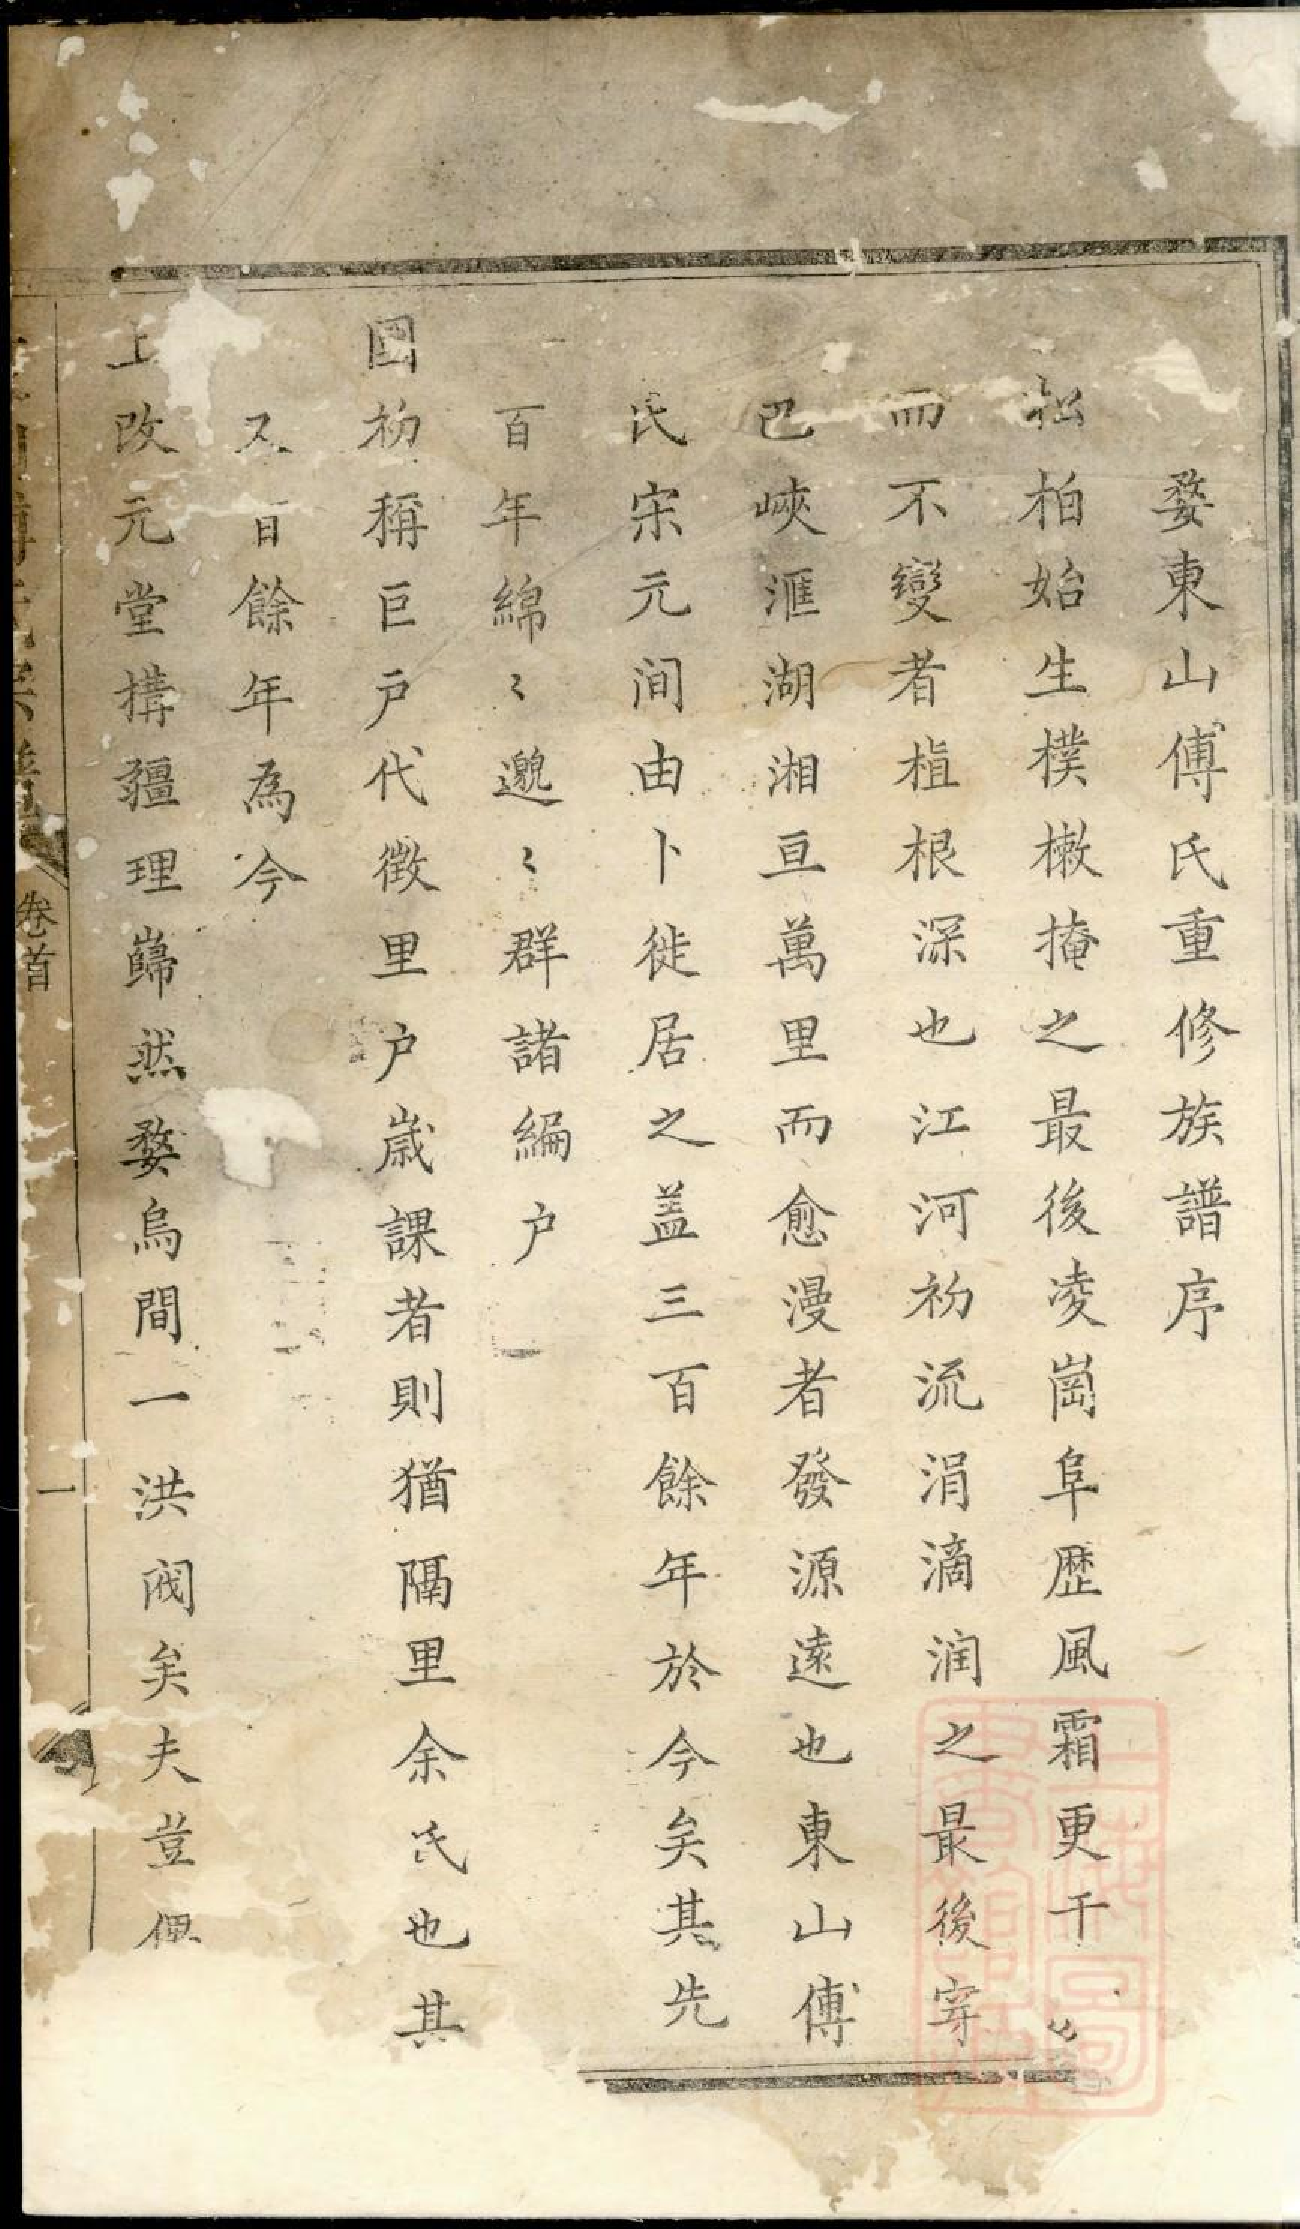 婺東山傅氏重修族譜序
松柏始生樸樕掩之最後凌崗阜歷風霜更干
而不變者植根深也江河初流涓滴润之最後穿
巴峽滙湖湘亘萬里而愈漫者發源遠也東山傅
氏宋元间由卜徙居之盖三百餘年於今矣其先
百年綿〻邈〻群諸編户
國初稱巨戸代徵里户歲課者則猶隔里余氏也其
又百餘年為今
上改元堂構疆理巋然婺烏間一洪阀矣夫豈偶
卷首
一
上海圖書館藏